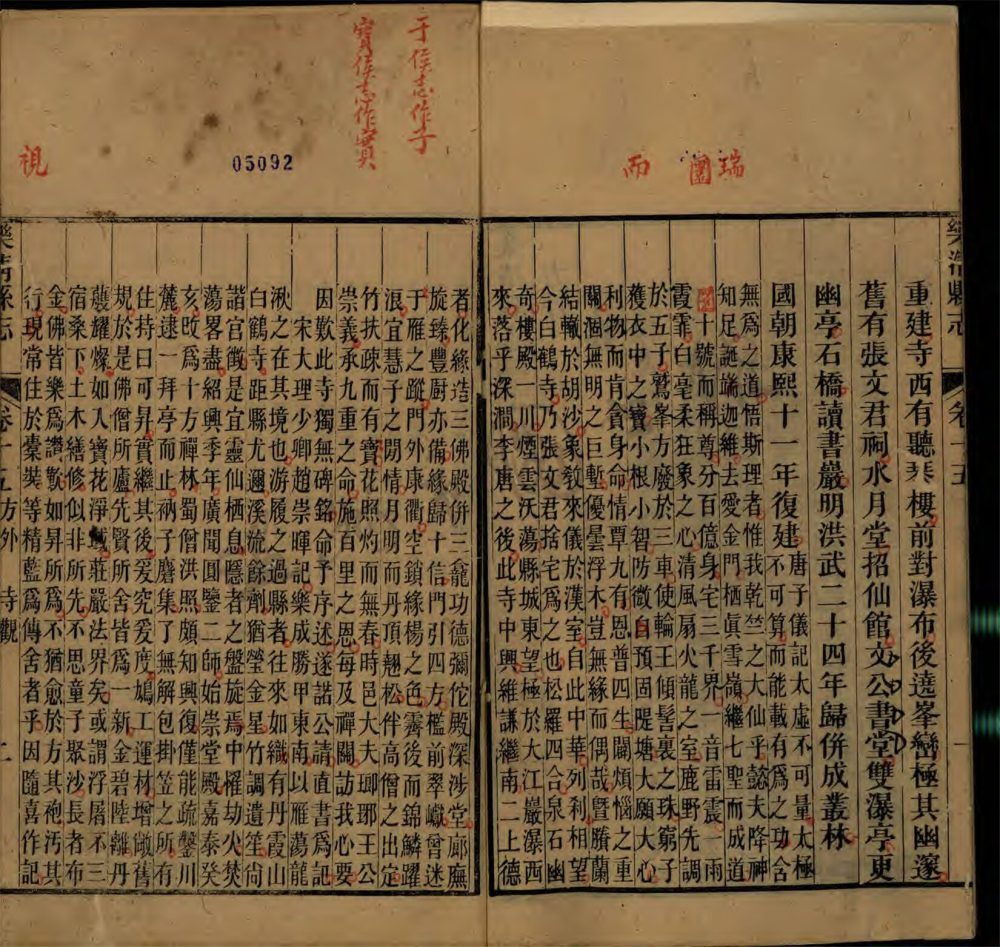 瑞
圓
而
樂清縣志 卷十五 一
重建寺西有聽琴樓前對瀑布後遶峯巒極其幽邃
舊有張文君祠水月堂招仙館文公書堂雙瀑亭更
幽亭石橋讀書巖明洪武二十四年歸併成叢林
國朝康熙十一年復建唐子儀記太虛不可量太極
不可算而能載有爲之功含
無爲之道悟斯理者惟我乾竺之大仙乎懿夫降神
知足誕端迦維去愛金門栖眞雪嶺繼七聖而成道
圓十號而稱尊分百億身宅三千界一音雷震一雨
霞霏白毫柔狂象之心清風扇火龍之室鹿野先調
於五子鷲峯方廢於三車使輪王傾髻裏之珠窮子
獲衣中之寶小根小智防微自預固隄塘大願大心
利物而肯貪身命情覃九有恩普四生闢煩惱之重
關涸無明之巨塹優曇浮木豈無緣而偶哉曁騰蘭
結轍於胡沙象敎來儀於漢室自此中華列利相望
今白鶴寺乃張文君捨宅爲之也松羅四合泉石幽
奇樓殿一川煙雲沃蕩縣城東望極於大江巖瀑西
來落乎深澗李唐之後此寺中興維謙繼南二上德
于侯志作子
寶侯志作實
05092
視
者化緣造三佛殿併三龕功德彌佗殿深涉堂廊廡
旋臻豐厨亦備緣歸十信門引四方檻前翠巘曾迷
于雁之蹤門外康衢空鎖緣楊之色霽後而錦鱗躍
浪宜慧子之閒情月明而丹頂翹松伴高僧之出定
竹扶疎而有寶花照灼而無春時邑大夫瑯琊王公
崇義承九重之命施百里之恩每及禪關訪我心要
因歎此寺獨無碑銘命予序述遂諾公請直書爲記
宋大理少卿趙崇暉記樂成勝甲東南以雁蕩龍
湫之在其境也游履之過縣者往來如織有丹霞山
白鶴寺距縣尤邇溪流餘劑猶瑩金星竹調遺笙尙
諧官徵是宜靈仙栖息隱者之盤旋焉中罹劫火焚
蕩畧盡紹興季年廣聞圓鑒二師始崇堂殿嘉泰癸
亥攺爲十方禪林蜀僧洪照頗知興復僅能疏鑿川
麓逮一拜亭而止衲子麏集了無解包掛笠之所有
住持曰可昇實繼其後爰究爰度鳩工運材增敞舊
規於是佛僧所廬先賢所舍皆爲一新金碧陸離丹
雘耀燦如入寶花淨域莊嚴法界矣或謂浮屠不三
宿桑土木繕修似非所先不思童子聚沙長者布
金佛皆樂爲讚歎如昇所爲不猶愈於方其袍汚其
行現常住於橐裝等精藍爲傳舍者乎因隨喜作記
樂清縣志 卷十五方外 寺觀 二